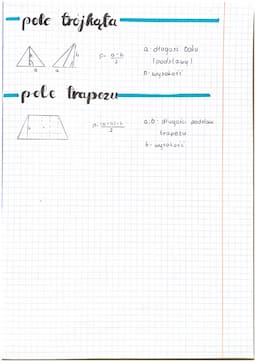 pole trójkąta
h
h
a
a
P= a·h
2
a- długość boku
(podstawy)
h- wysokość
pole trapezu
P= (a+b)·h
2
a,b- długości podstaw
trapezu
h- wysokość